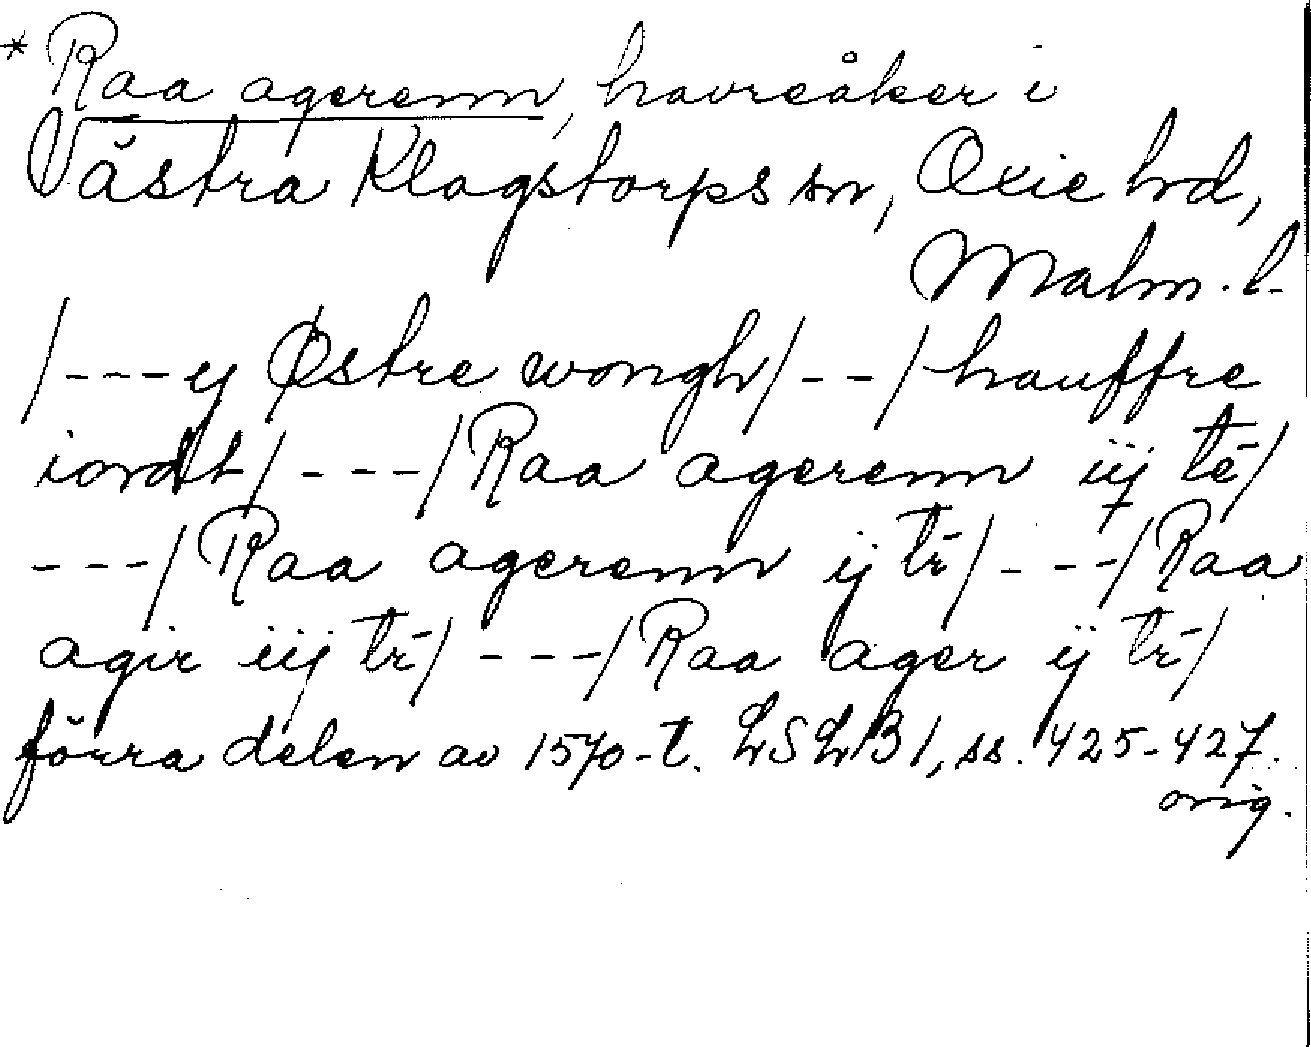 * Raa agerenn, havreåker i
Västra Klagstorps sn, Oxie hd,
Malm. l.
/---y Østre wongh/--/hauffre
iordt/---/Raa agerenn iij te/
---/Raa agerenn ij tr̄/---/Raa
agir iiij tr̄/---/Raa ager ij tr̄/
förra delen av 1570-t. LSLB 1, ss. 425-427.
orig.